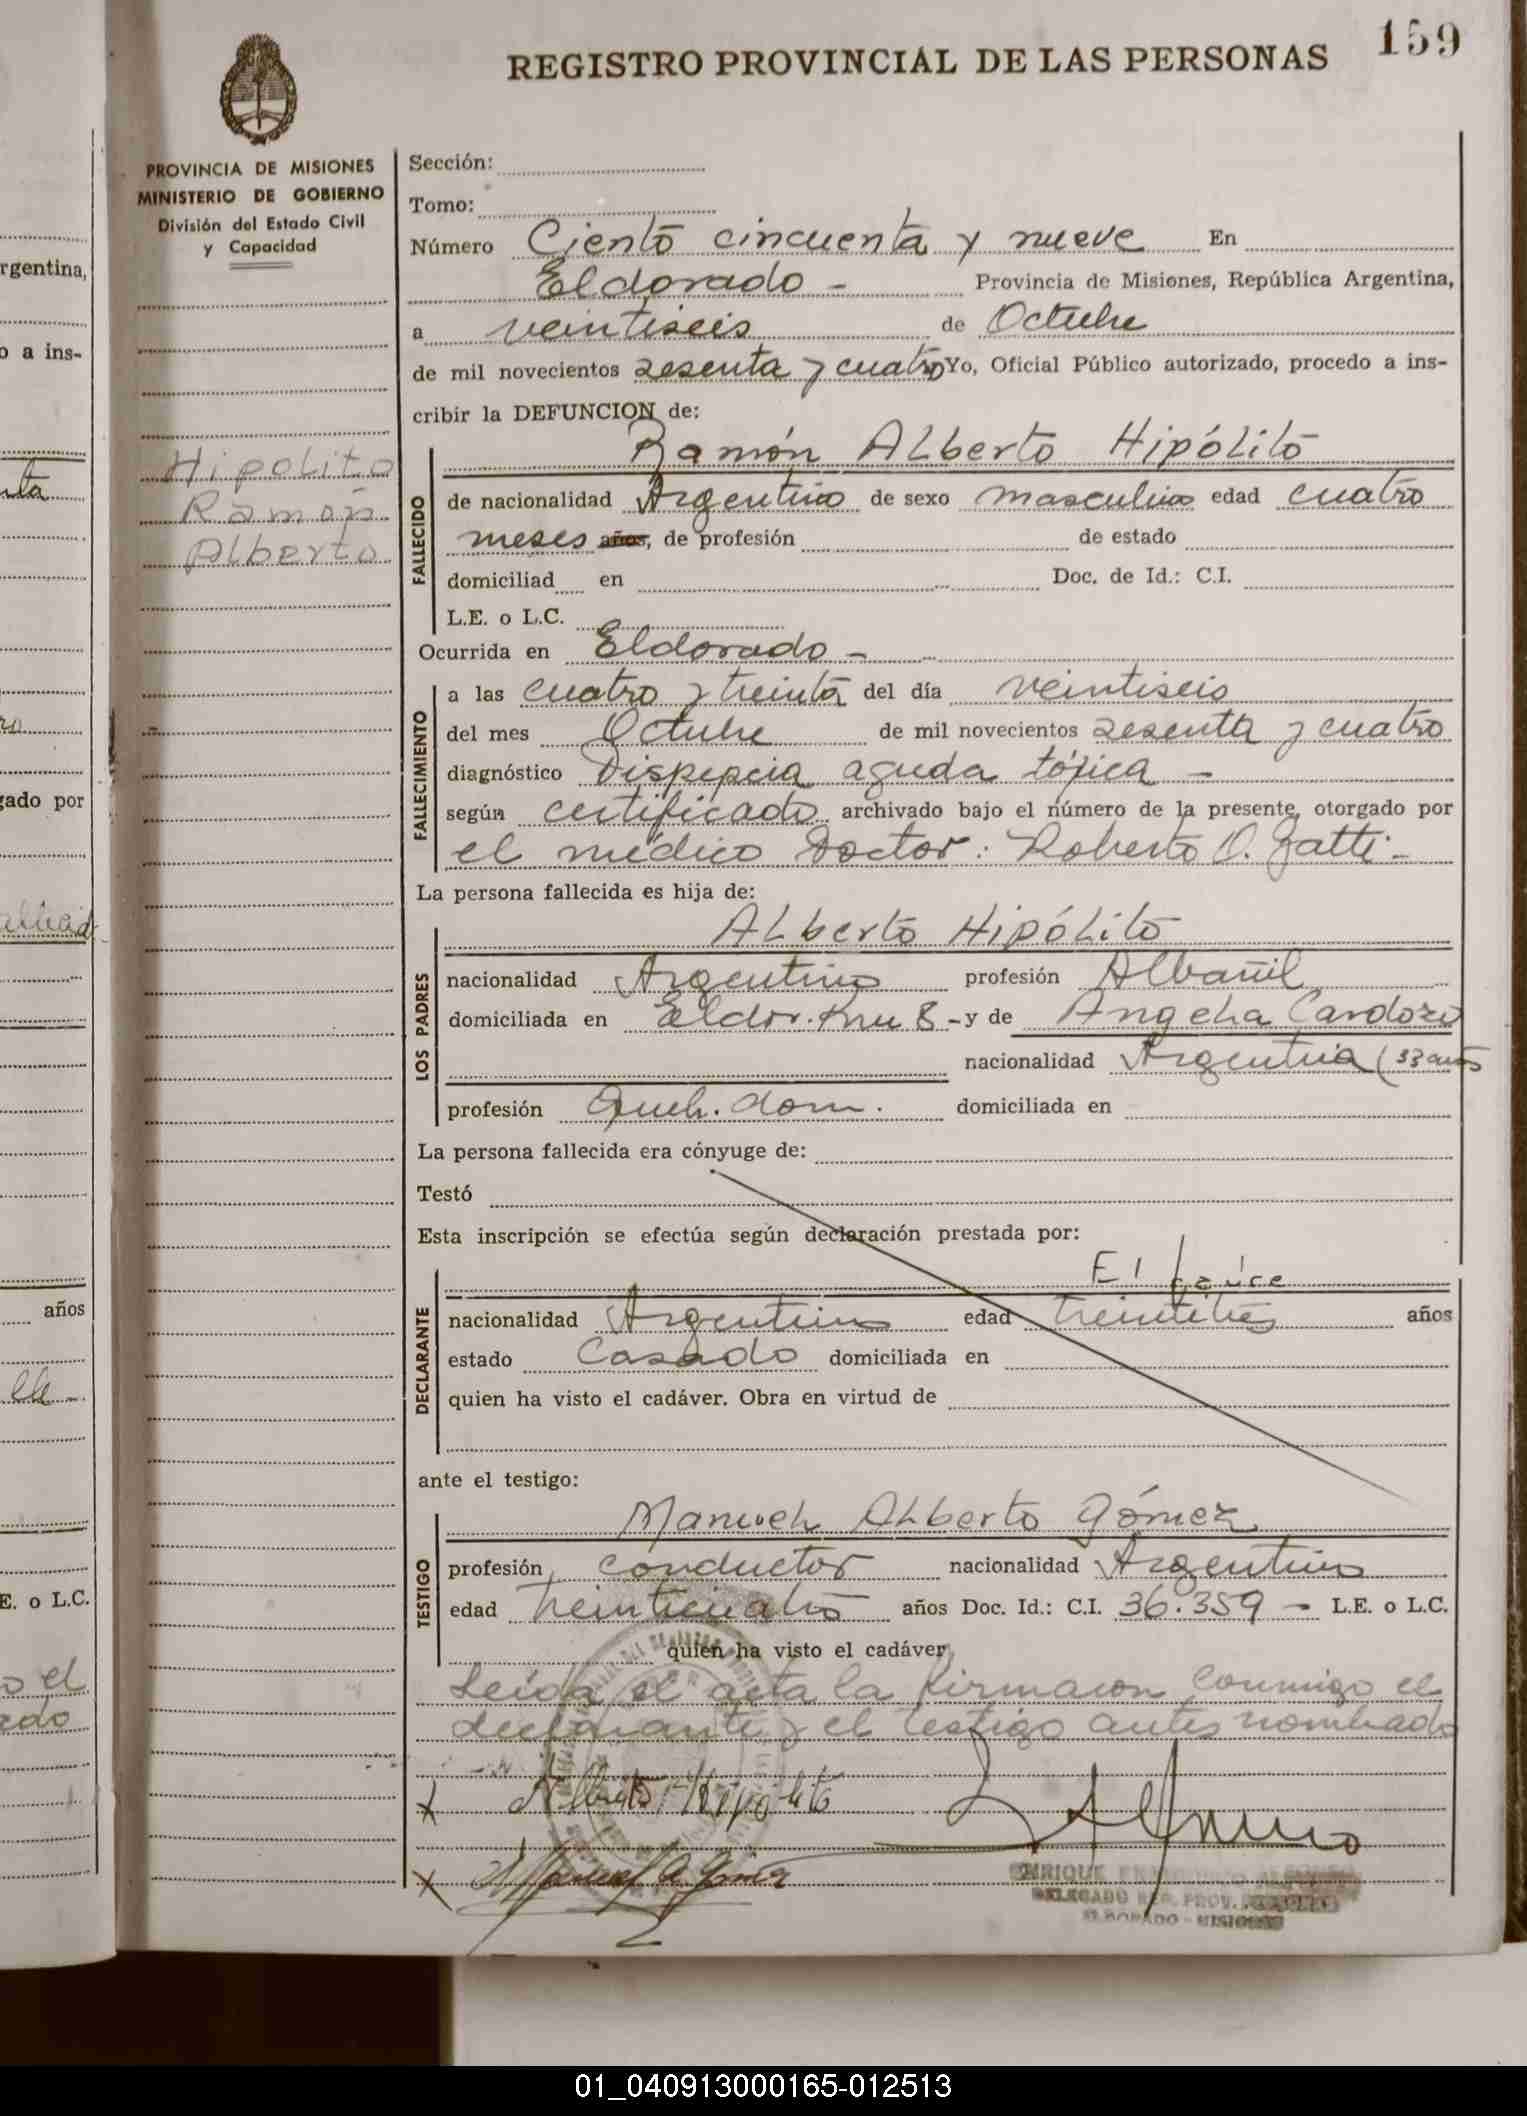 159
REGISTRO PROVINCIAL DE LAS PERSONAS
PROVINCIA DE MISIONES
MINISTERIO DE GOBIERNO
División del Estado Civil
y Capacidad
Hipólito
Ramón
Alberto
Sección:
Tomo:
Número Ciento cincuenta y nueve En
Eldorado - Provincia de Misiones, República Argentina,
a veintiseis de Octubre
de mil novecientos sesenta y cuatro Yo, Oficial Público autorizado, procedo a ins-
cribir la DEFUNCION de:
Ramón Alberto Hipólito
FALLECIDO
de nacionalidad Argentino de sexo masculino edad cuatro
meses años, de profesión de estado
domiciliad en Doc. de Id.: C.I.
L.E. o L.C.
Ocurrida en Eldorado -
FALLECIMIENTO
a las cuatro y treinta del día veintiseis
del mes Octubre de mil novecientos sesenta y cuatro
diagnóstico Dispepcia aguda tóxica -
según certificado archivado bajo el número de la presente, otorgado por
el médico Doctor: Roberto O. Gatti -
La persona fallecida es hija de:
Alberto Hipólito
LOS PADRES
nacionalidad Argentino profesión Albañil
domiciliada en Eldor. Km 8 - y de Angela Cardozo
nacionalidad Argentina (33 años
profesión Queh. dom. domiciliada en
La persona fallecida era cónyuge de:
Testó
Esta inscripción se efectúa según declaración prestada por:
El
DECLARANTE
nacionalidad Argentino edad treintitrés años
estado Casado domiciliada en
quien ha visto el cadáver. Obra en virtud de
ante el testigo:
Manuel Alberto Gómez
TESTIGO
profesión conductor nacionalidad Argentino
edad treinticuatro años Doc. Id.: C.I. 36.359 - L.E. o L.C.
quien ha visto el cadáver
Leída el acta la firmaron conmigo el
declarante y el testigo antes nombrado
x Alberto Hipólito
x Manuel A. Gómez
ENRIQUE
DELEGADO REG. PROV.
ELDORADO - MISIONES
rgentina,
o a ins-
gado por
años
E. o L.C.
o el
01_040913000165-012513